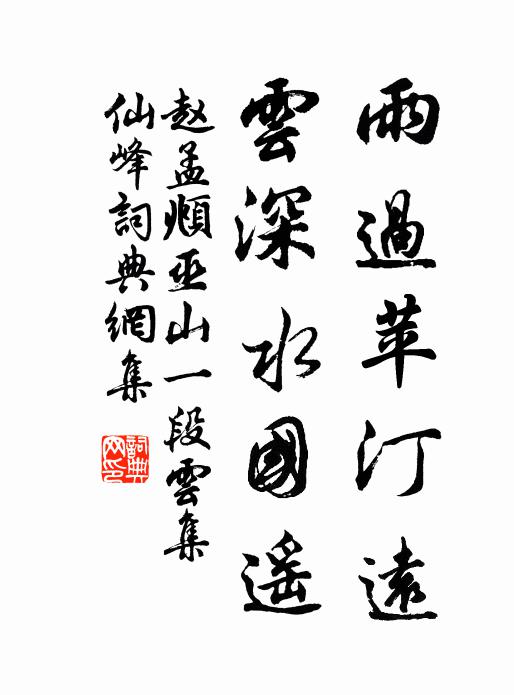 雨過苹汀遠
雲深水國遙
赵孟順巫山一段雲集
仙峰詞典網集
詞典
网印